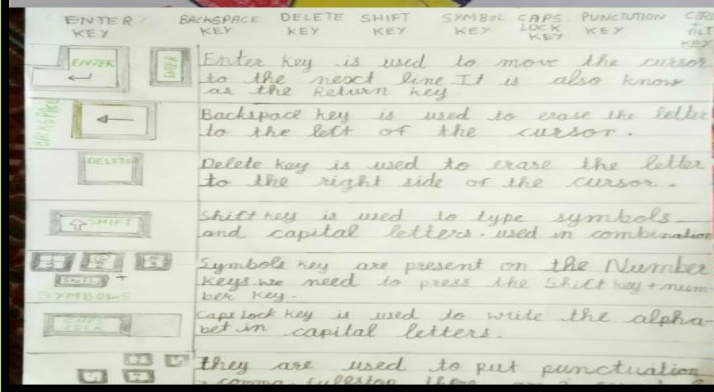 ENTER BACKSPACE DELETE SHIFT SYMBOL CAPS PUNCTUTION CTRL
KEY KEY KEY KEY KEY LOCK KEY +
KEY ALT
KEY
ENTER
ENTER
Enter key is used to move the cursor
to the next line It is also know
as the Return key.
BACKSPACE
Backspace key is used to erase the letter
to the left of the cursor.
DELETE
Delete key is used to erase the letter
to the right side of the cursor.
SHIFT
Shift key is used to type symbols
and capital letters. used in combination
SHIFT +
SYMBOLS
Symbols key are present on the Number
keys. we need to press the Shift key + num
ber key.
CAPS
LOCK
Caps lock key is used to write the alpha-
bet in capital letters.
they are used to put punctuation